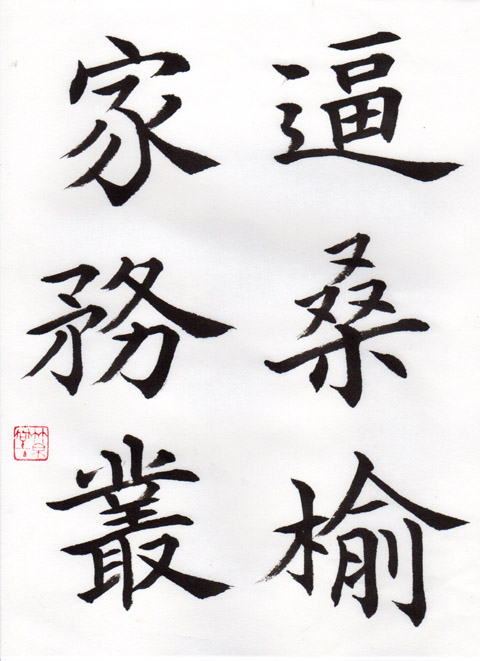 逼桑榆
家務叢